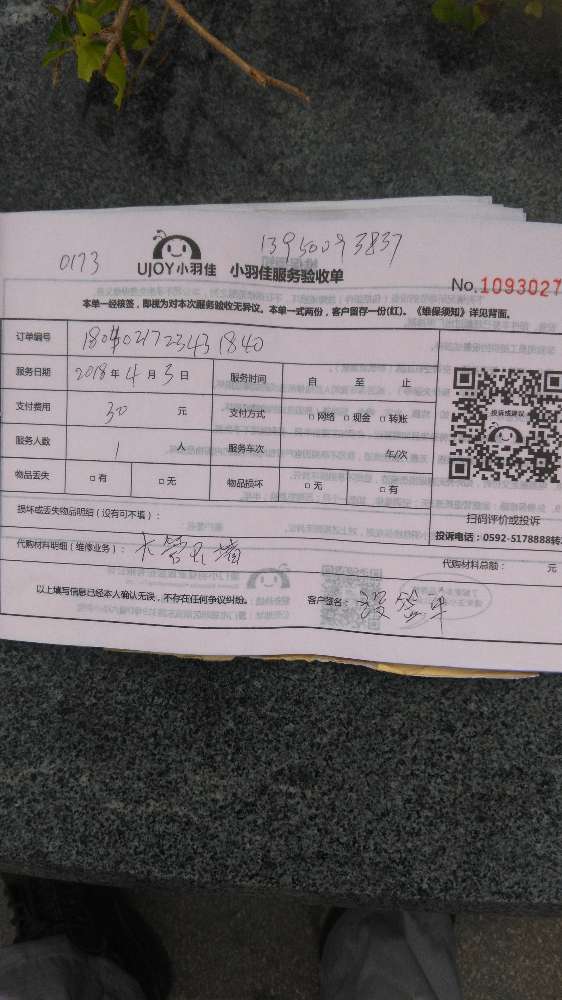 0173
UJOY小羽佳 小羽佳服务验收单
No.1093027
本单一经核签，即视为对本次服务验收无异议。本单一式两份，客户留存一份(红)。《维保须知》详见背面。
订单编号
服务日期 2018年4月3日 服务时间 自 至 止
支付费用 30 元 支付方式 □网络 □现金 □转账
投诉或建议
服务人数 1 人 服务车次 车/次
物品丢失 □有 □无 物品损坏 □无 □有
损坏或丢失物品明细（没有可不填）：
扫码评价或投诉
投诉电话：0592-5178888转
代购材料明细（维修业务）：
代购材料总额： 元
以上填写信息已经本人确认无误，不存在任何争议纠纷。 客户签名：没签单